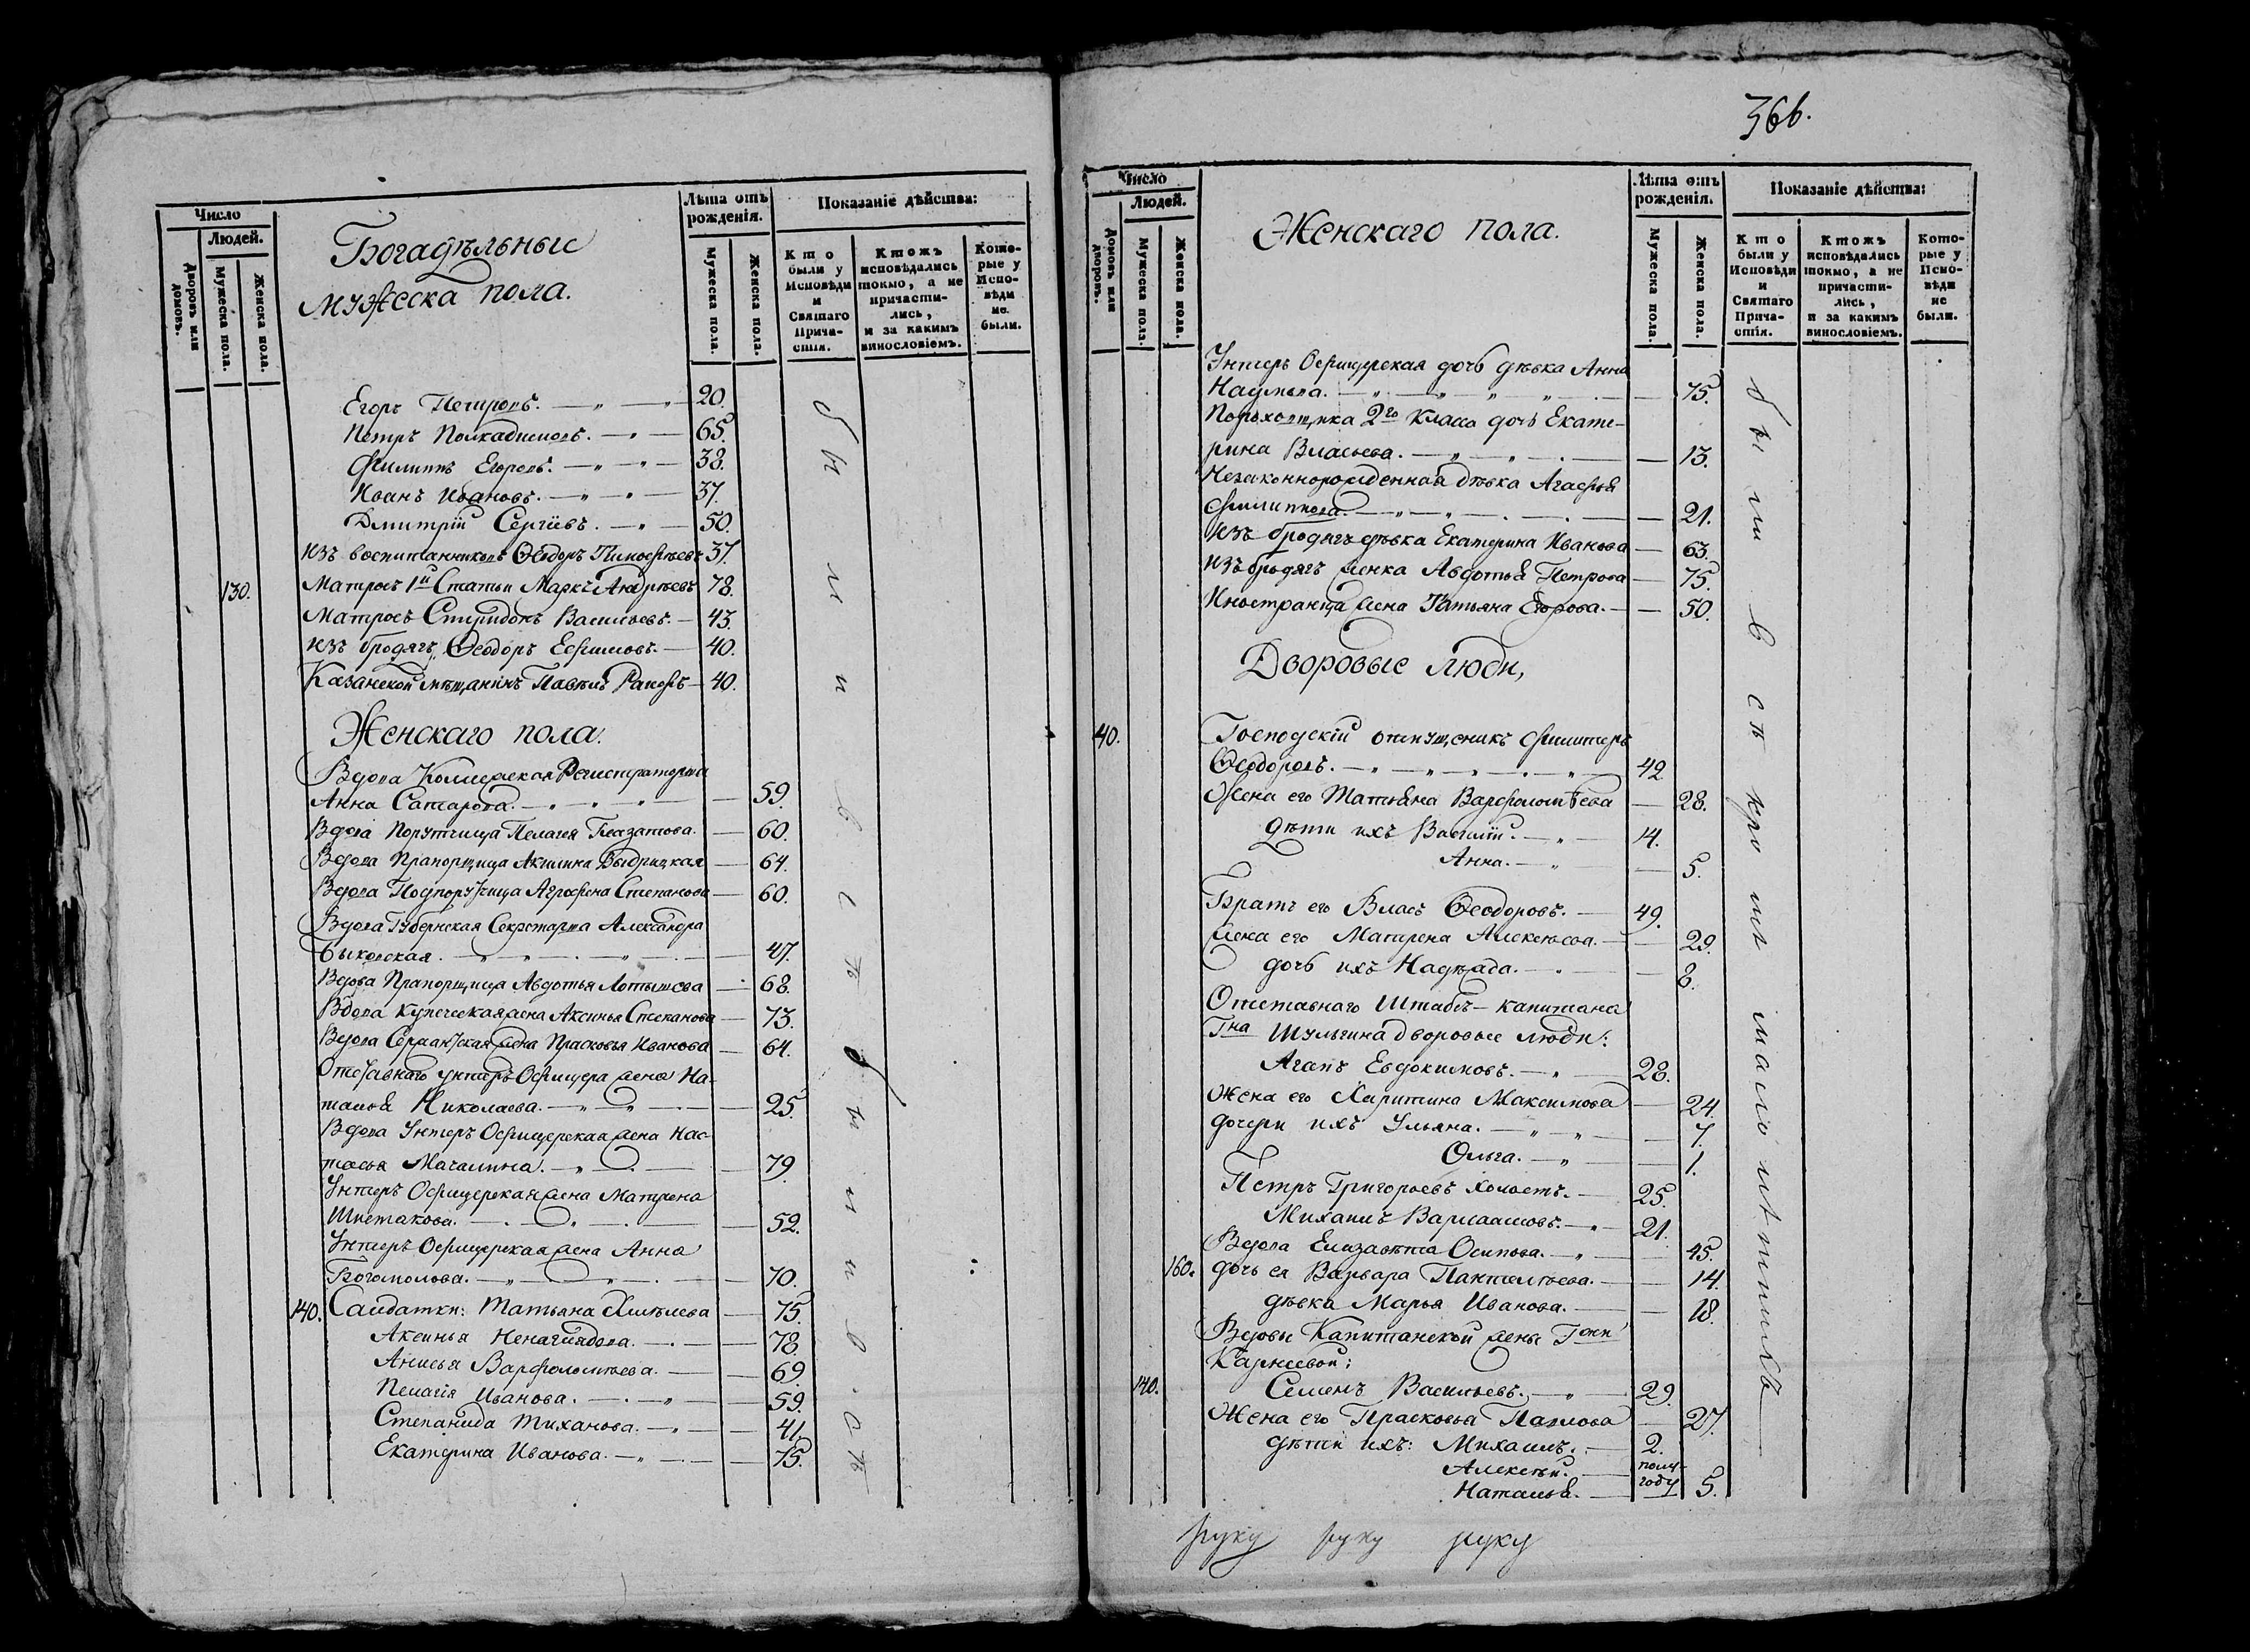 Число
Людей.
Дворовъ или домовъ.
Мужеска пола.
Женска пола.
Богадѣльные
мужеска пола.
Лѣта отъ рожденія.
Мужеска пола.
Женска пола.
Показаніе дѣйства:
Кто были у Исповѣди и Святаго Прича-стія.
Ктожъ исповѣдались токмо, а не причасти-лись, и за какимъ винословіемъ.
Кото-рые у Испо-вѣди не были.
Егоръ Петровъ. 20.
Петръ 65.
Филиппъ Егоровъ. 38.
Иванъ Ивановъ. 37.
Дмитрій Сергіевъ. 50.
Изъ воспитанниковъ Ѳеодоръ Тимофѣевъ 37.
130. Матросъ 1й Статьи Маркъ Андрѣевъ 78.
Матросъ Спиридонъ Васильевъ. 43.
Изъ бродягъ Ѳеодоръ Ефимовъ. 40.
Казанской мѣщанинъ Павелъ 40.
Женскаго пола:
Вдова Коллежская Регистраторша
Анна Сатарова. 59.
Вдова Порутчица Пелагея 60.
Вдова Прапорщица Акилина 64.
Вдова Подпорутчица Аграфена Степанова 60.
Вдова Губернская Секретарша Александра
Быковская. 47.
Вдова Прапорщица Авдотья Лотышева 68.
Вдова Купеческая жена Аксинья Степанова 73.
Вдова Сержантская жена Прасковья Иванова 64.
Отставнаго унтеръ Офицера жена На-
талья Николаева. 25.
Вдова Унтеръ Офицерская жена Нас-
тасья Мачалина. 79.
Унтеръ Офицерская жена Матрена
Шистакова. 52.
Унтеръ Офицерская жена Анна
Богомолова. 70.
140. Салдатки: Татьяна Хмѣлева 75.
Аксинья Ненаглядова. 78.
Анисья Варфоломѣева. 69.
Пелагія Иванова. 59.
Степанида Тиханова. 41.
Екатерина Иванова. 75.
были въ с
366.
Число
Людей.
Домовъ или дворовъ.
Мужеска пола.
Женска пола.
Женскаго пола.
Лѣта отъ рожденія.
Мужеска пола.
Женска пола.
Показаніе дѣйства:
Кто были у Исповѣди и Святаго Прича-стія.
Ктожъ исповѣдались токмо, а не причасти-лись, и за какимъ винословіемъ.
Кото-рые у Испо-вѣди не были.
Унтеръ Офицерская дочь дѣвка Анна
Наумова. 75.
2го Класса дочь Екате-
рина Власьева. 13.
Незаконнорожденная дѣвка Агафья
Филиппова. 21.
Изъ бродягъ дѣвка Екатерина Иванова 63.
Изъ бродягъ женка Авдотья Петрова 75.
Иностранца жена Татьяна Егорова. 50.
Дворовые люди,
40. Господскій отпущеникъ
Ѳеодоровъ. 42
Жена его Татьяна Варфоломѣева 28.
дѣти ихъ Василій. 14.
Анна. 5.
Братъ его Власъ Ѳеодоровъ. 49.
жена его Матрена Алексѣева. 29.
дочь ихъ Надежда. 8.
Отставнаго Штабсъ-капитана
Гна Шульгина дворовые люди:
Агапъ Евдокимовъ. 28.
Жена его Харитина Максимова 24.
дочери ихъ Ульяна. 7.
Ольга. 1.
Петръ Григорьевъ холостъ. 25.
Михаилъ Варлаамовъ. 21.
Вдова Елизавета Осипова. 45.
160. дочь ея Варвара Пантелѣева. 14.
дѣвка Марья Иванова. 18.
Вдовы Капитанской жены Гжи
Карнеевой:
140. Семенъ Васильевъ. 29.
Жена его Прасковья Павлова 27.
дѣти ихъ: Михаилъ. 2.
Алексѣй. полу-году
Наталья. 5.
были въ с кромѣ малолѣтныхъ
руку руку руку